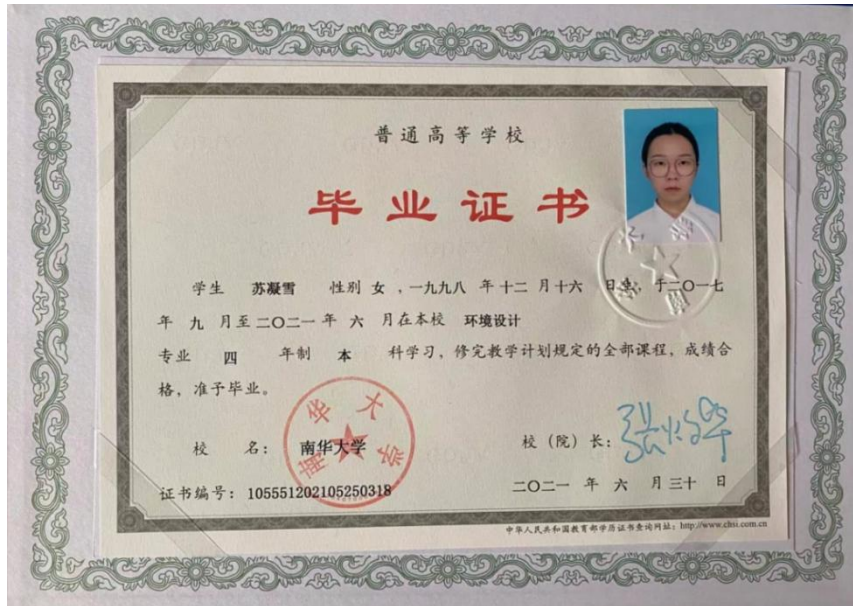 普通高等学校
毕业证书
学生 苏凝雪 性别 女 , 一九九八 年 十二 月 十六 日生, 于二〇一七
年 九 月至 二〇二一 年 六 月在本校 环境设计
专业 四 年制 本 科学习, 修完教学计划规定的全部课程, 成绩合
格, 准予毕业。
南华大学
校 名: 南华大学 校 (院) 长:
证书编号: 105551202105250318 二〇二一 年 六 月 三十 日
中华人民共和国教育部学历证书查询网址: http://www.chsi.com.cn